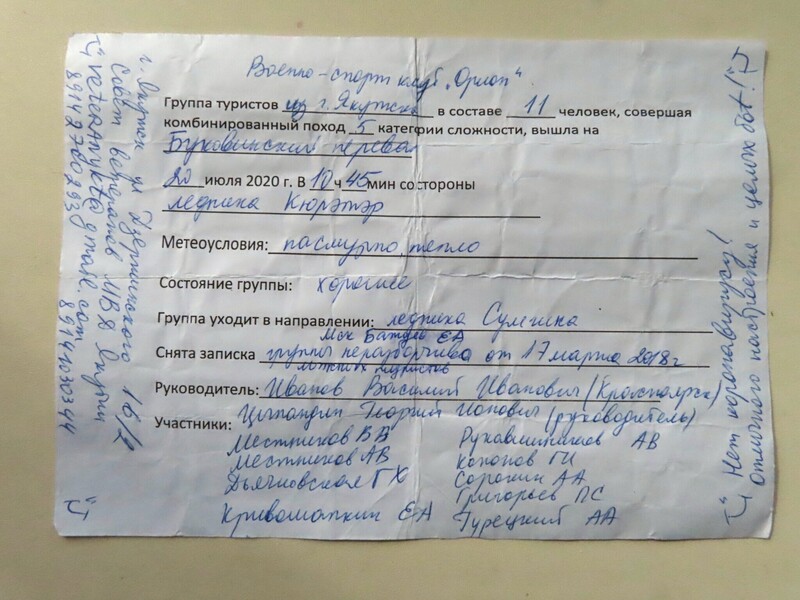 Военно-спорт клуб "Орион"
Группа туристов из г. Якутска в составе 11 человек, совершая
комбинированный поход 5 категрии сложности, вышла на
Буковинский перевал
20 июля 2020 г. В 10 ч 45 мин со стороны
ледника Кюрэтэр
Метеоусловия: пасмурно, тепло
Состояние группы: хорошее
Группа уходит в направлении: ледника Сумгина
Снята записка группы неразборчива от 17 марта 2018 г
Руководитель: Иванов Василий Иванович (Красноярск)
Цыпандин Георгий Ионович (руководитель)
Участники:
Местников ВВ Рукавишников АВ
Местников АВ Кононов ГИ
Дьячковская ГХ Сорокин АА
Григорьев ПС
Кривошапкин ЕА Турецкий АА
г. Якутск ул Дзержинского 16/2
Совет ветеранов МВД Якутии
Нет коронавирусу!
Отличного настроения и целых бот!